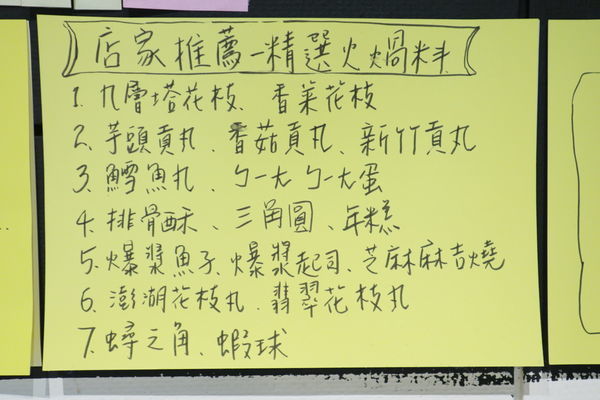 店家推薦-精選火鍋料
1. 九層塔花枝、香菜花枝
2. 芋頭貢丸、香菇貢丸、新竹貢丸
3. 鱈魚丸、ㄅㄧㄤㄅㄧㄤ蛋
4. 排骨酥、三角圓、年糕
5. 爆漿魚子、爆漿起司、芝麻麻吉燒
6. 澎湖花枝丸、翡翠花枝丸
7. 蟳之角、蝦球